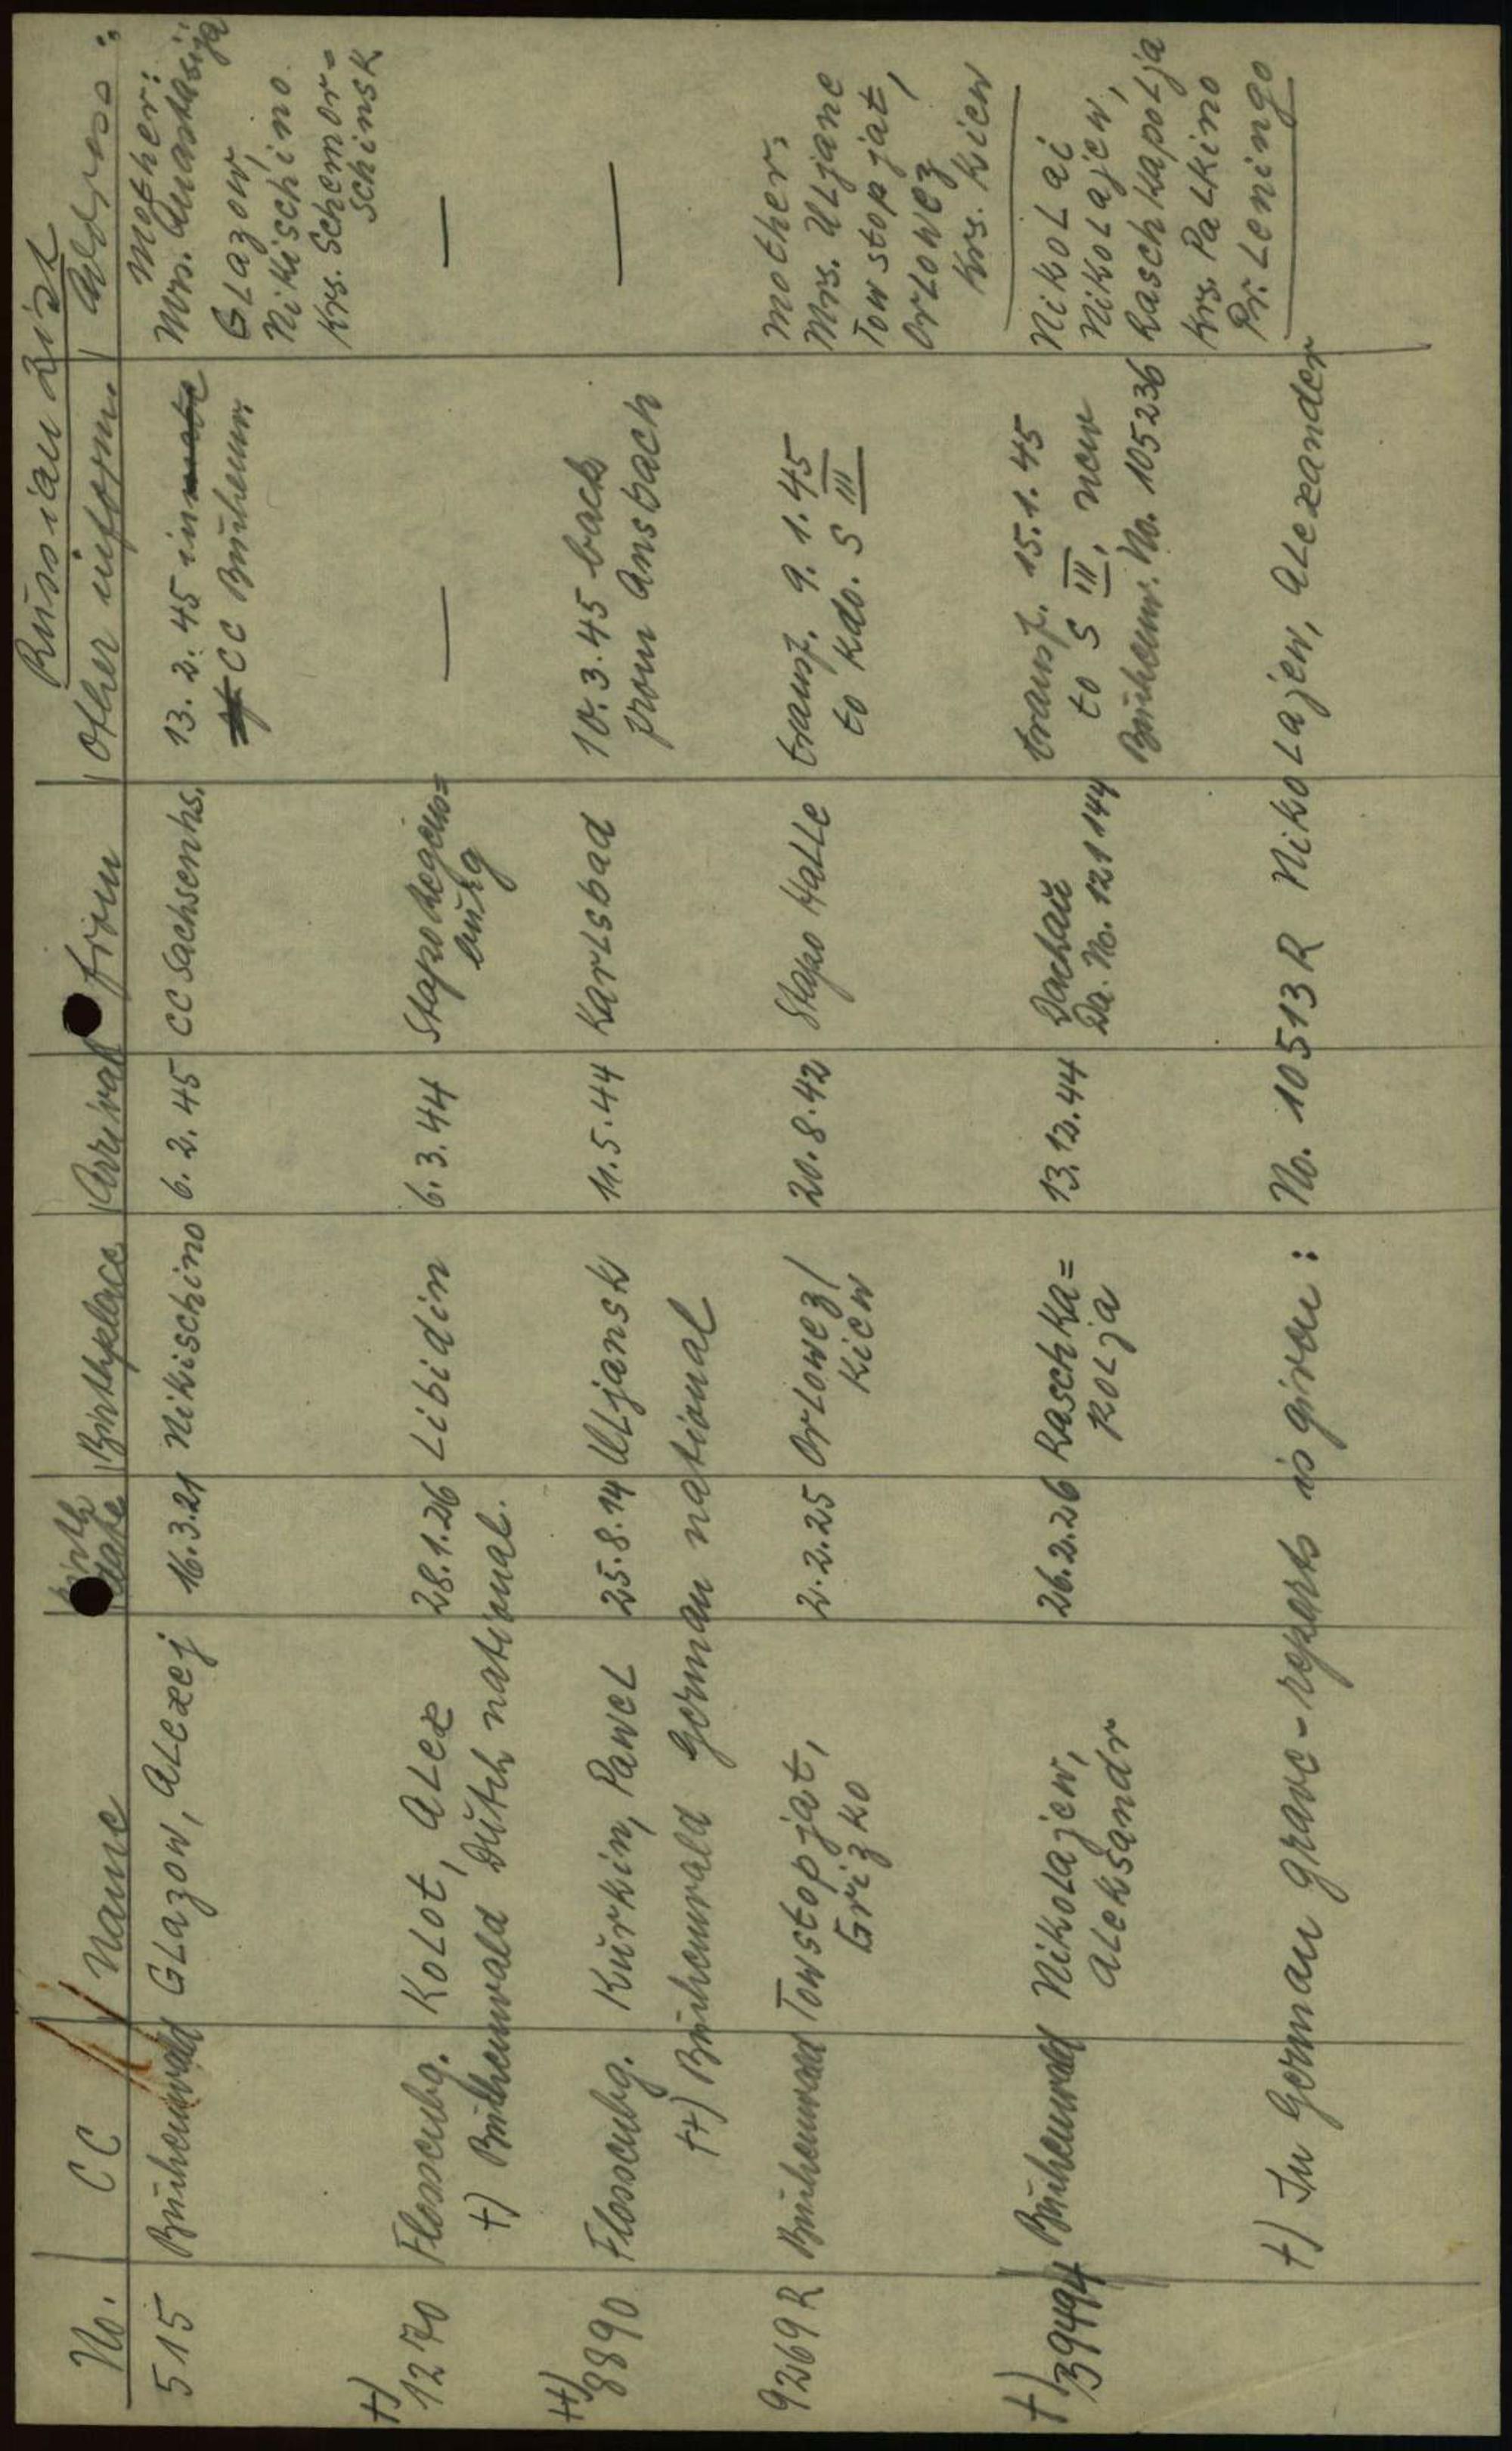 Russian List
No. | CC | Name | Birth date | Birthplace | Arrival | from | Other inform. | Address:
515 Buchenwald Glazow, Alexej 16.3.21 Nikischino 6.2.45 CC Sachsenhs. 13.2.45 in mother:
CC Buchenw. Mrs. Anastasija
Glazow,
Nikischino
Krs. Schemor=
schinsk
+) 1270 Flossenbg. Kolot, Alex 28.1.26 Libidin 6.3.44 Stapo Regens= — —
burg
+) Buchenwald Dutch national.
++) 8890 Flossenbg. Kurkin, Pawel 25.8.14 Uljansk 11.5.44 Karlsbad 10.3.45 back —
from Ansbach
++) Buchenwald German national
9269 R Buchenwald Towstopjat, 2.2.25 Orlowez/ 20.8.42 Stapo Halle transf. 9.1.45 mother:
Grizko Kiew to Kdo. S III Mrs. Uljane
Towstopjat,
Orlowez
Krs. Kiew
+) 39494 Buchenwald Nikolajew, 26.2.26 Raschka= 13.12.44 Dachau transf. 15.1.45 Nikolai
Aleksandr polja Da. No. 121144 to S III, new Nikolajew,
Buchenw. No. 105236 Raschkapolja
Krs. Palkino
Pr. Leningo
+) In German grave-reports is given: No. 10513 R Nikolajew, Alexander